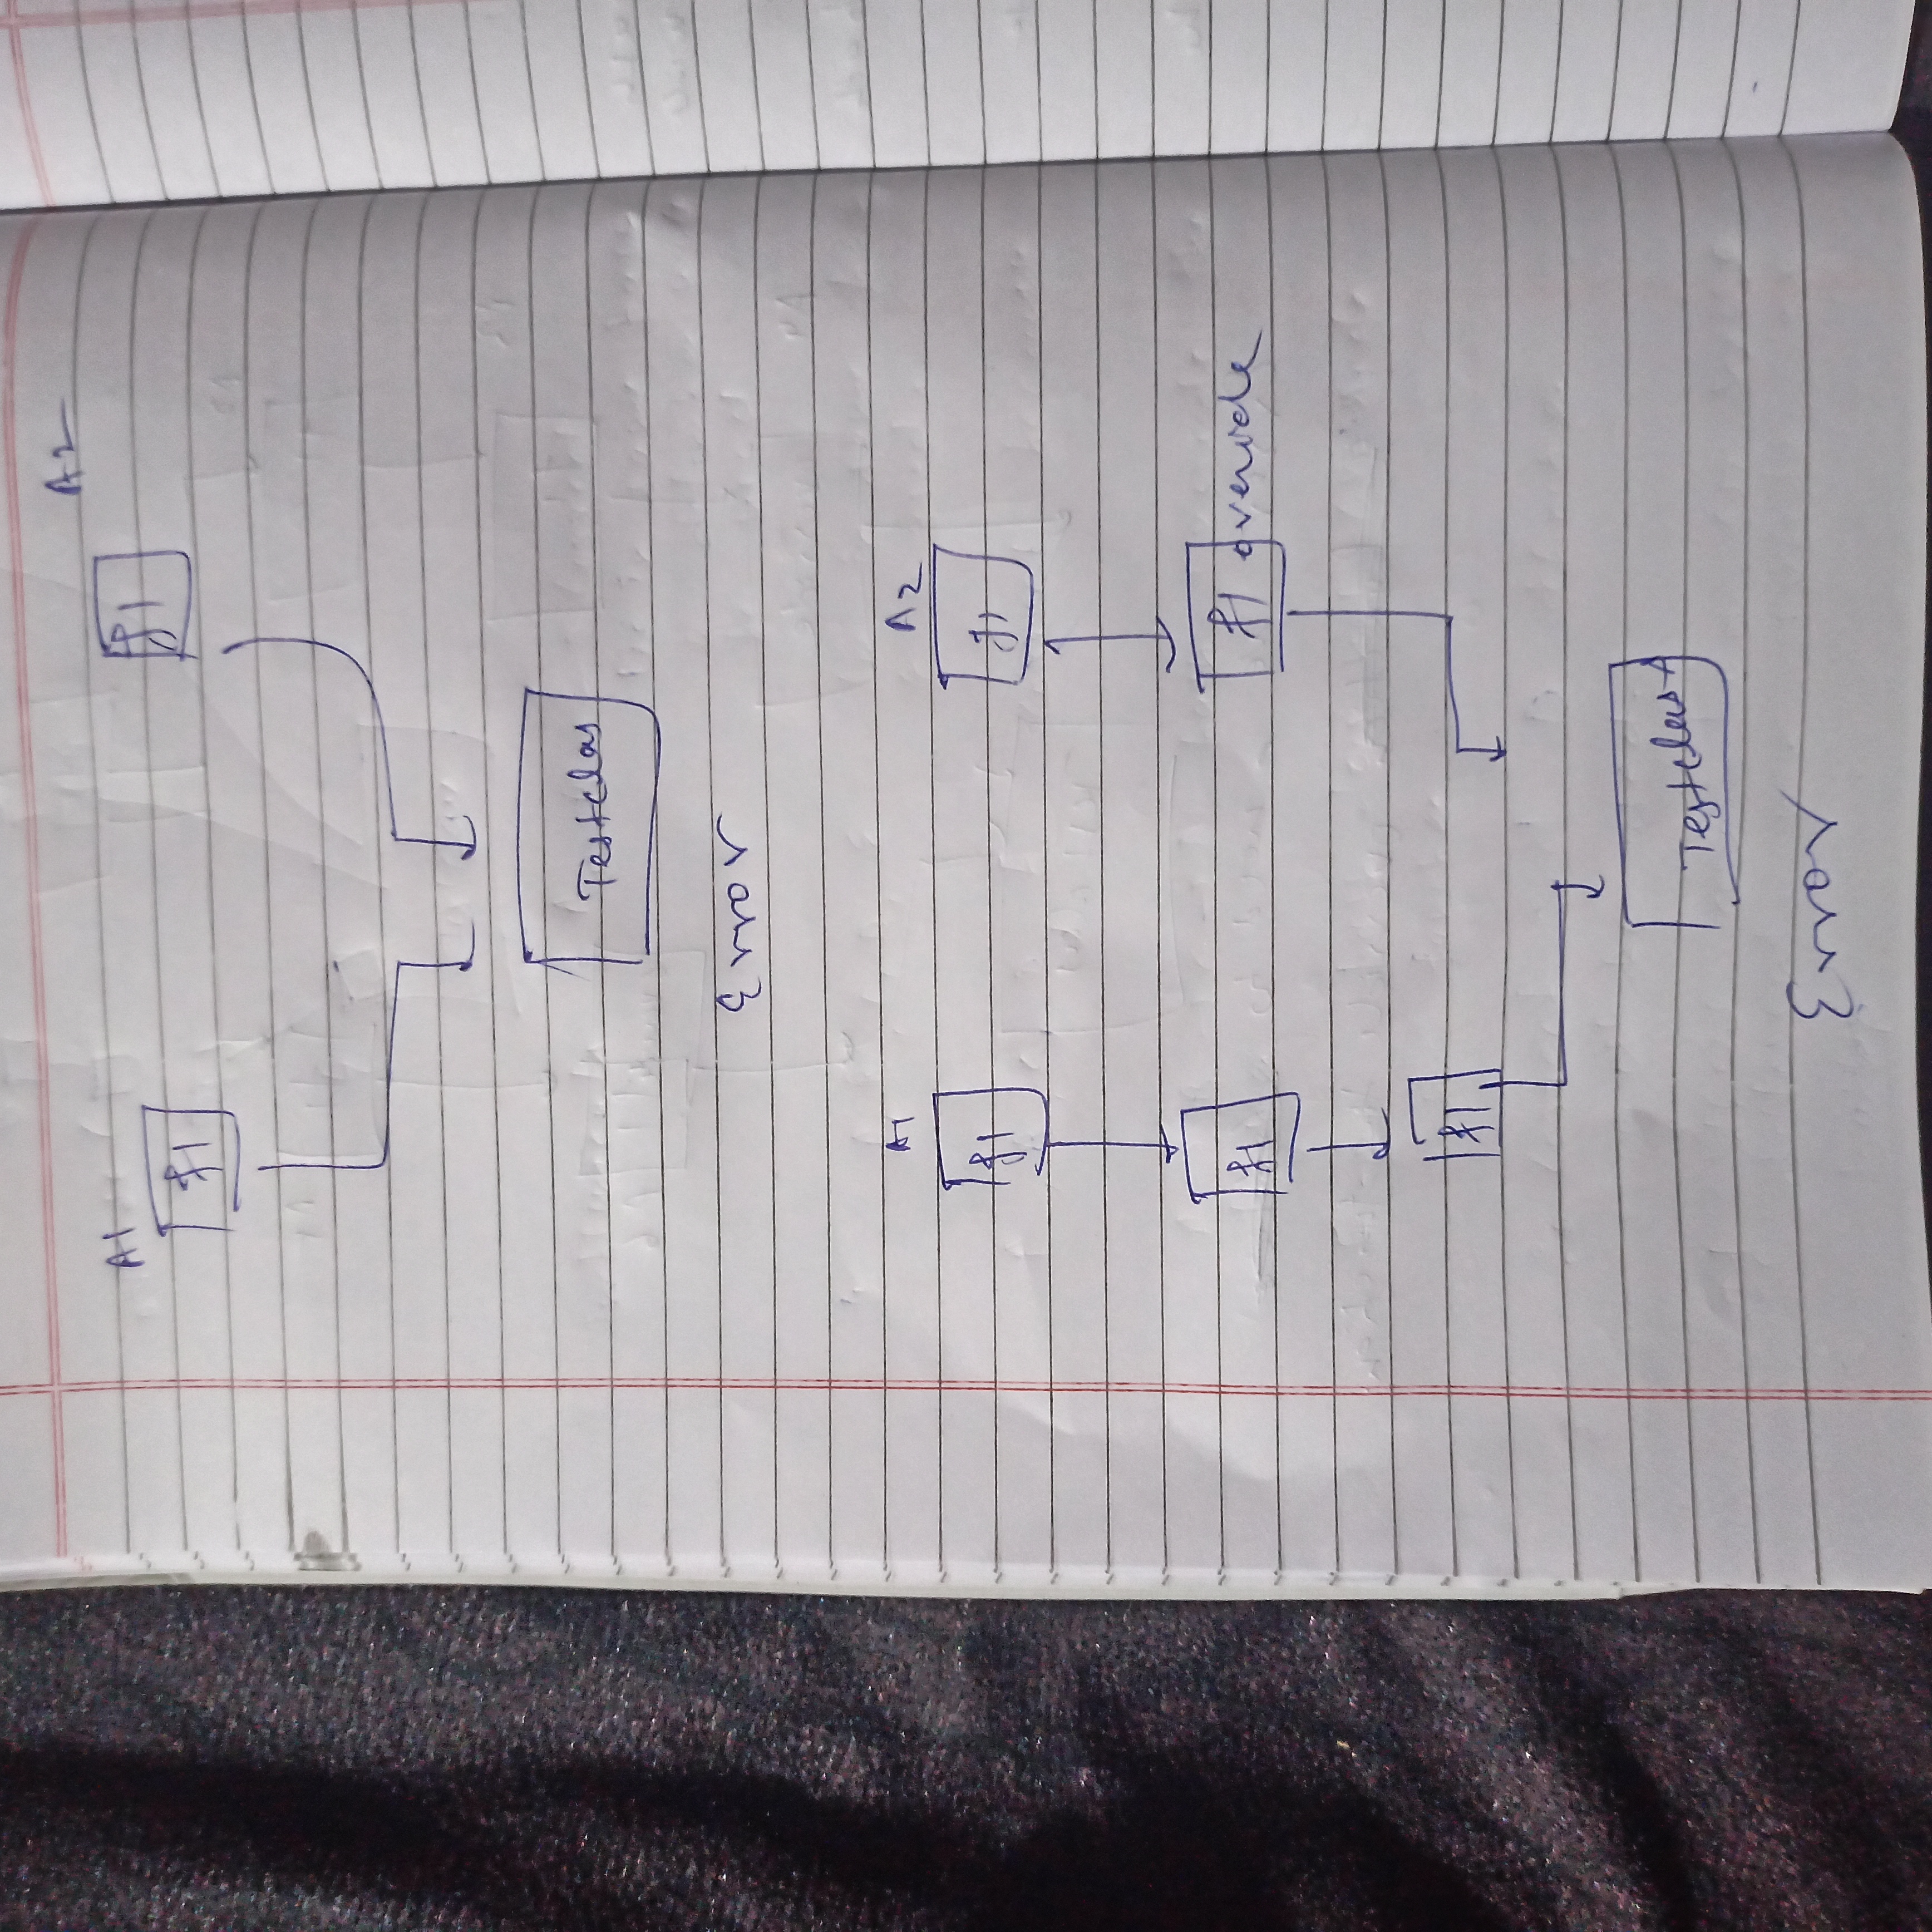 A1
A2
f1
f1
Testclas
Error
A1
A2
f1
f1
f1
f1 override
f1
Testclas
Error